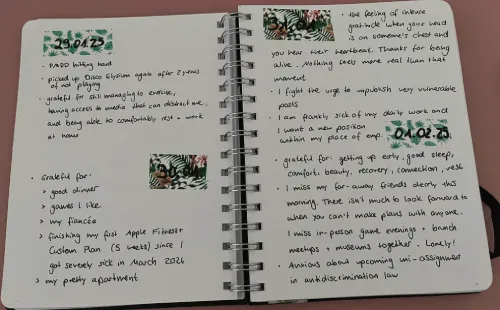 29.01.25
· PMDD hitting hard
· picked up Disco Elysium again after 2 years
of not playing
· grateful for still managing to exercise,
having access to media that can distract me,
and being able to comfortably rest + work
at home
30.01
· Grateful for:
> good dinner
> games I like
> my fiancée
> finishing my first Apple Fitness+
Custom Plan (5 weeks) since I
got severely sick in March 2024
> my pretty apartment
· the feeling of intense
gratitude when your head
is on someone's chest and
you hear their heartbeat. Thanks for being
alive. Nothing feels more real than that
moment
· I fight the urge to unpublish very vulnerable
posts
· I am frankly sick of my daily work and
I want a new position
within my place of emp.
01.02.25
· grateful for: getting up early, good sleep,
comfort, beauty, recovery, connection, rest
· I miss my far-away friends dearly this
morning. There isn't much to look forward to
when you can't make plans with anyone.
I miss in-person game evenings + brunch
meetups + museums together. Lonely!
· Anxious about upcoming uni-assignment
in antidiscrimination law